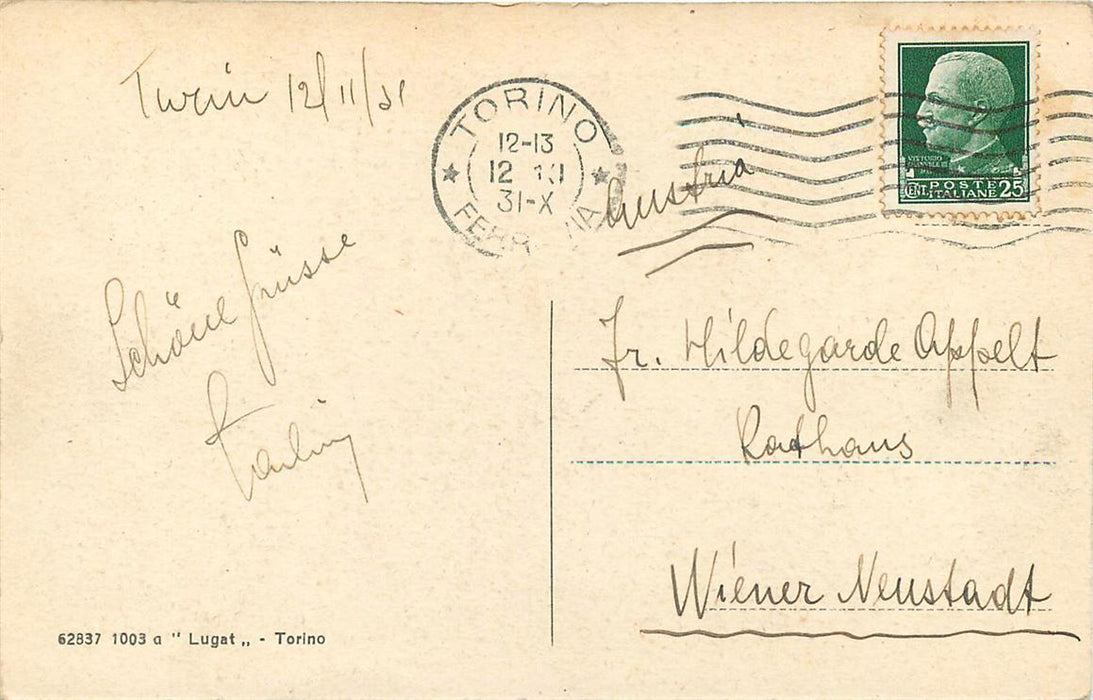 Turin 12/11/31
TORINO
12-13
12 XI
31-X
FERROVIA
VITTORIO
EMANUELE III
CENT. POSTE
ITALIANE 25
Austria
Schöne Grüsse
Fr. Hildegarde Appelt
Rathaus
Wiener Neustadt
62837 1003 a " Lugat „ - Torino